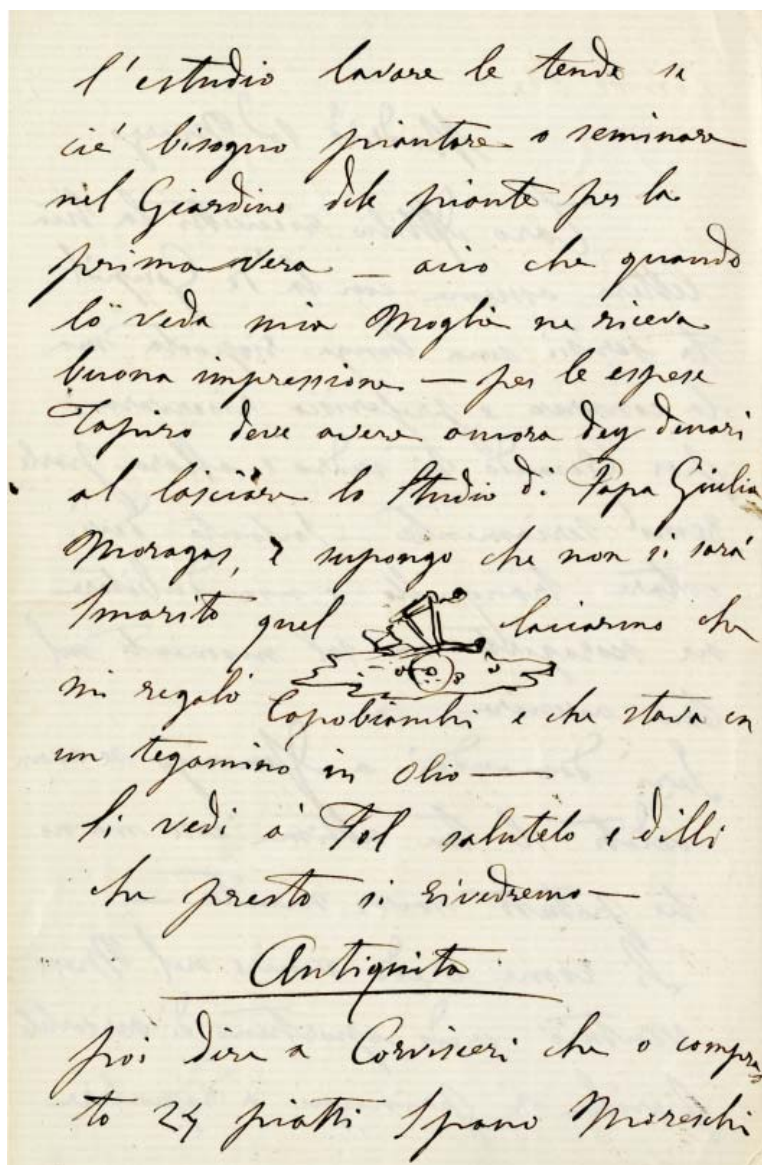 l'estudio lavare le tende se
cié bisogno piantare o seminare
nel Giardino dele piante per la
prima vera — acio che quando
lo veda mia Moglie ne riceva
buona impressione — per le espese
Tapiro deve avere ancora deg denari
al lasciare lo Studio di Papa Giulio
Moragas, e supongo che non si sará
smarito quel lacciarino che
mi regaló Capobianchi e che stava en
un tegamino in olio —
Si vedi á Fol salutelo e dilli
che presto si rivedremo —
Antiquita
poi dire a Corvisieri che o compra
to 24 piatti Spano Moreschi